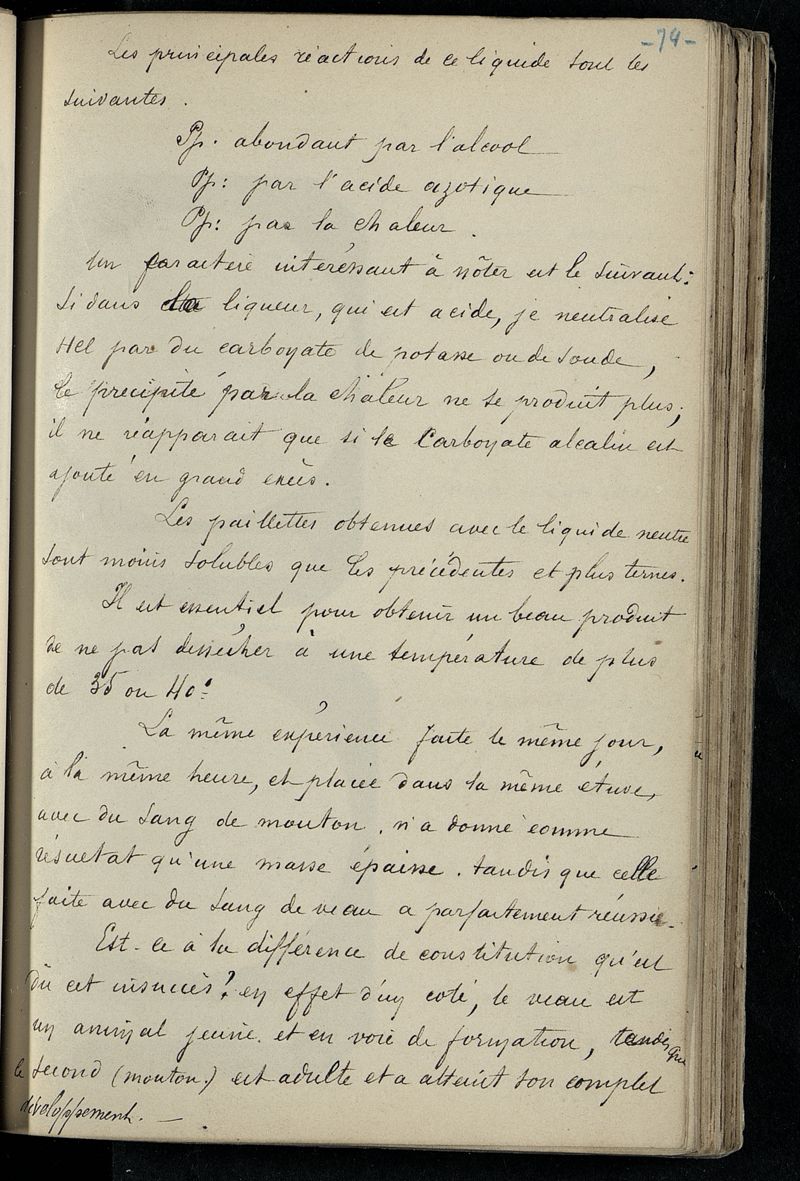 -74-
Les principales réactions de ce liquide sont les
suivantes.
Pp. abondant par l'alcool
Pp: par l'acide azotique
Pp: par la chaleur.
Un caractère intéressant à nôter est le suivant:
Si dans la liqueur, qui est acide, je neutralise
Hcl par du carbonate de potasse ou de soude,
le précipité par la chaleur ne se produit plus;
il ne réapparait que si le carbonate alcalin est
ajouté en grand excès.
Les paillettes obtenues avec le liquide neutre
sont moins solubles que les précédentes et plus ternes.
Il est essentiel pour obtenir un beau produit
de ne pas dessécher à une température de plus
de 35 ou 40°.
La même expérience faite le même jour,
à la même heure, et placée dans la même étuve,
avec du sang de mouton, n'a donné comme
résultat qu'une masse épaisse. tandis que celle
faite avec du sang de veau a parfaitement réussie.
Est-ce à la différence de constitution qu'est
dû cet insuccès? en effet d'un coté, le veau est
un animal jeune. et en voie de formation, tandis que
le second (mouton.) est adulte et a atteint son complet
développement. —